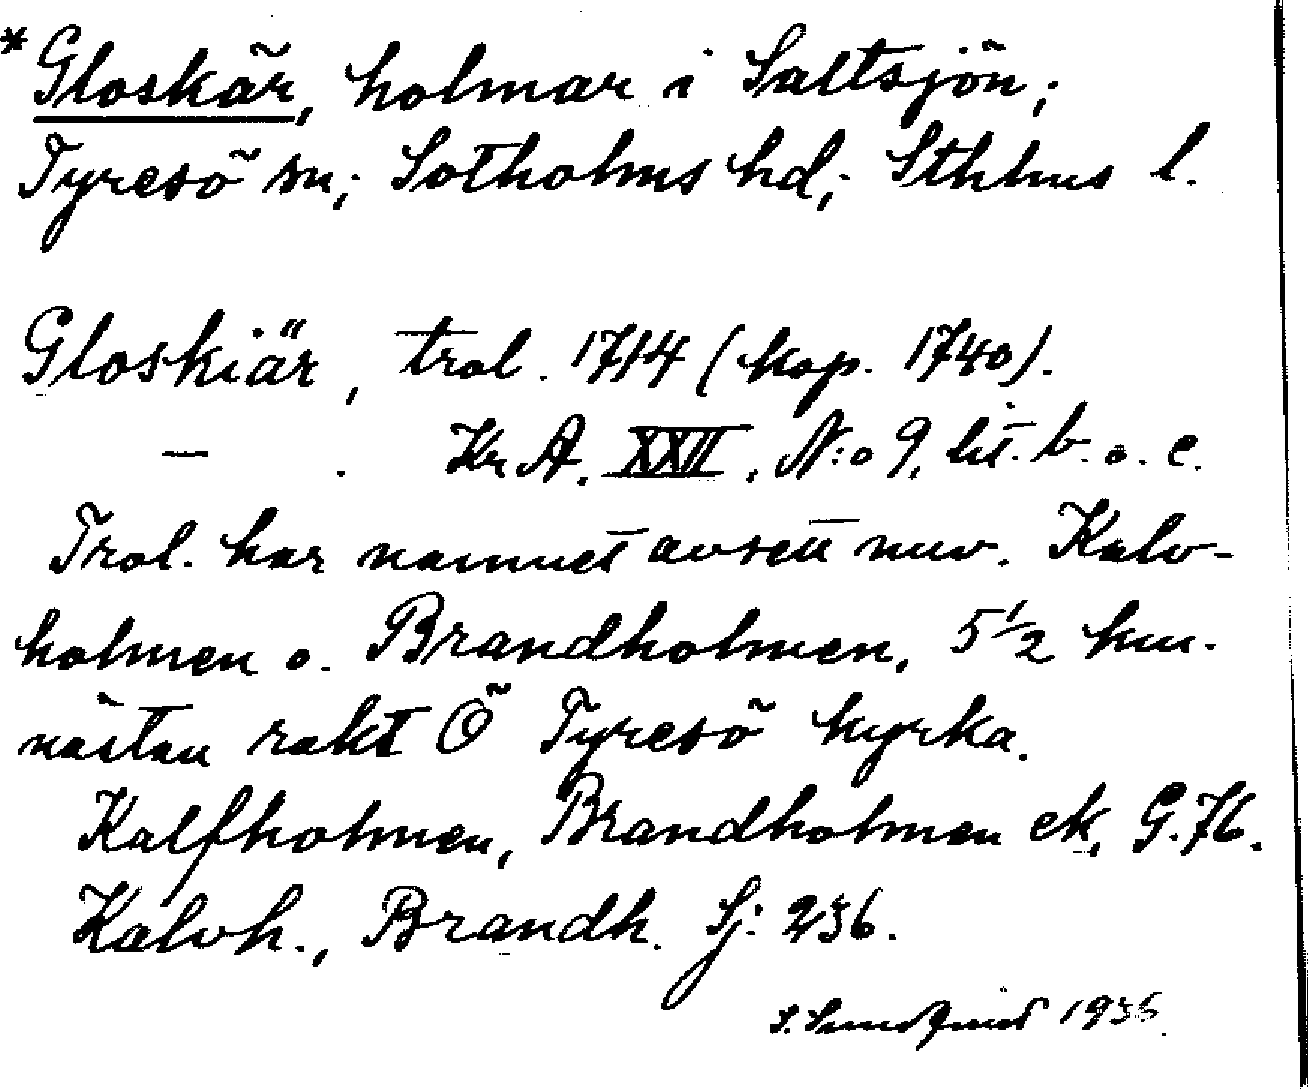 *Gloskär, holmar i Saltsjön;
Tyresö sn; Sotholms hd; Sthlms l.
Gloskiär, trol. 1714 (kop. 1740).
— . Kr A. XXII, N:o 9, lit. b. o. c.
Trol. har namnet avsett nuv. Kalv-
holmen o. Brandholmen, 5 1/2 km.
nästan rakt Ö Tyresö kyrka.
Kalfholmen, Brandholmen ek, G. 76.
Kalvh., Brandh. Sj: 236.
S. Sundqvist 1936